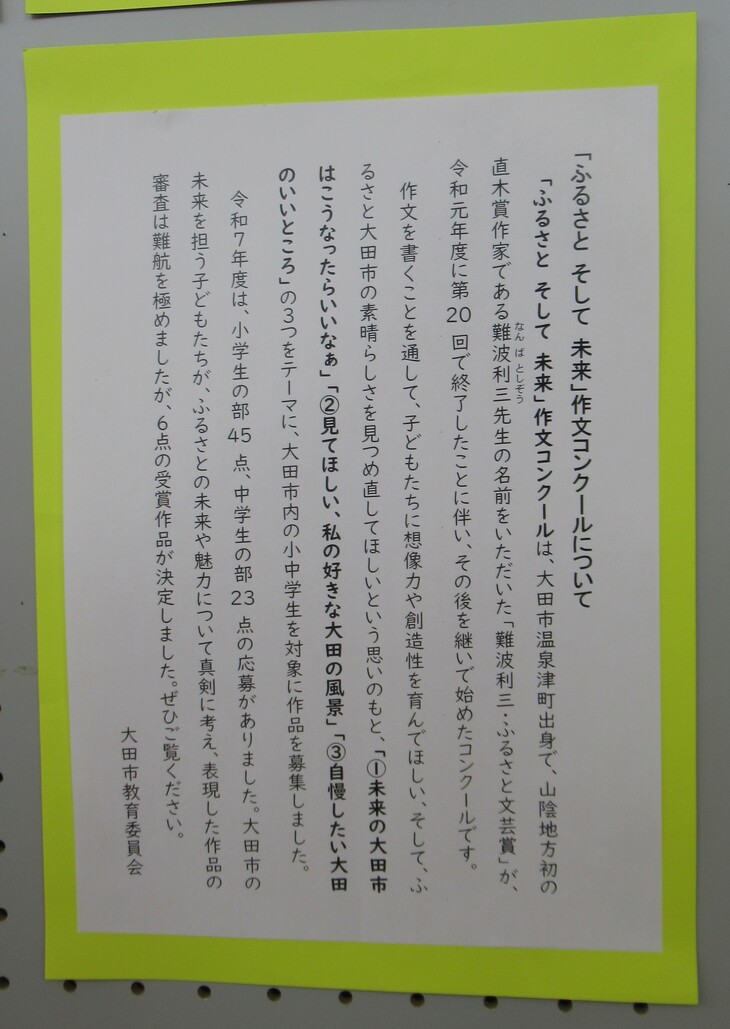 「ふるさと そして 未来」作文コンクールについて
「ふるさと そして 未来」作文コンクールは、大田市温泉津町出身で、山陰地方初の
直木賞作家である難波利三先生の名前をいただいた「難波利三・ふるさと文芸賞」が、
なん ば としぞう
令和元年度に第20回で終了したことに伴い、その後を継いで始めたコンクールです。
作文を書くことを通して、子どもたちに想像力や創造性を育んでほしい、そして、ふ
るさと大田市の素晴らしさを見つめ直してほしいという思いのもと、「①未来の大田市
はこうなったらいいなぁ」「②見てほしい、私の好きな大田の風景」「③自慢したい大田
のいいところ」の3つをテーマに、大田市内の小中学生を対象に作品を募集しました。
令和7年度は、小学生の部45点、中学生の部23点の応募がありました。大田市の
未来を担う子どもたちが、ふるさとの未来や魅力について真剣に考え、表現した作品の
審査は難航を極めましたが、6点の受賞作品が決定しました。ぜひご覧ください。
大田市教育委員会